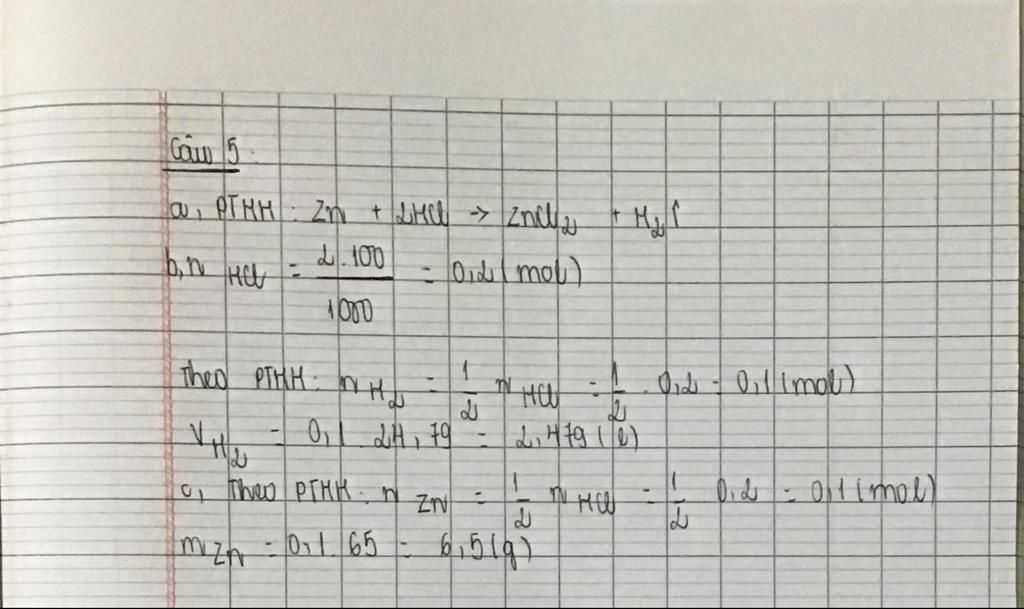 Câu 5:
a, PTHH: Zn + 2HCl → ZnCl₂ + H₂↑
b, n HCl = 2.100/1000 = 0,2 (mol)
Theo PTHH: n H₂ = 1/2 n HCl = 1/2 . 0,2 = 0,1 (mol)
V H₂ = 0,1 . 24,79 = 2,479 (l)
c, Theo PTHH: n Zn = 1/2 n HCl = 1/2 0,2 = 0,1 (mol)
m Zn = 0,1 . 65 = 6,5 (g)